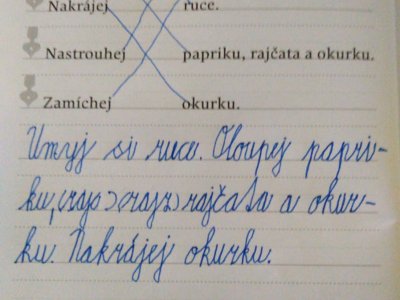 Nakrájej ruce.
Nastrouhej papriku, rajčata a okurku.
Zamíchej okurku.
Umyj si ruce. Oloupej papri-
ku, (rajs) (rajz) rajčata a okur-
ku. Nakrájej okurku.